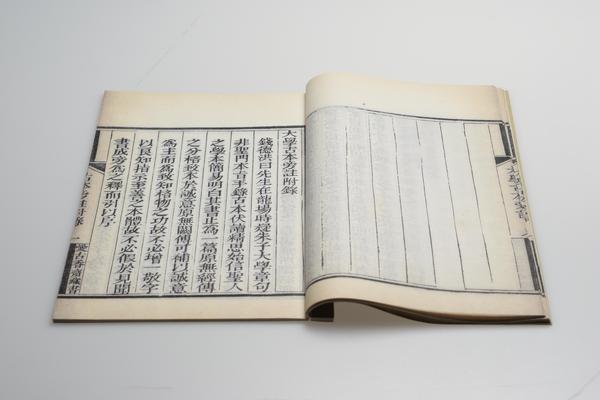 大學古本旁註附錄
錢德洪曰先生在龍場時疑朱子大學章句
非聖門本旨手錄古本伏讀精思始信聖人
之學本簡易明白其書止為一篇原無經傳
之分格致本於誠意原無闕傳可補以誠意
為主而為致知格物之功故不必增一敬字
以良知指示至善之本體故不必假於見聞
書成旁為之釋而引以序
古本旁註附錄
一